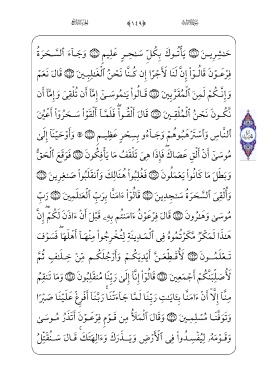 حَـٰشِرِينَ ۝ يَأْتُوكَ بِكُلِّ سَـٰحِرٍ عَلِيمٍ ۝ وَجَآءَ ٱلسَّحَرَةُ
فِرْعَوْنَ قَالُوٓا۟ إِنَّ لَنَا لَأَجْرًا إِن كُنَّا نَحْنُ ٱلْغَـٰلِبِينَ ۝ قَالَ نَعَمْ
وَإِنَّكُمْ لَمِنَ ٱلْمُقَرَّبِينَ ۝ قَالُوا۟ يَـٰمُوسَىٰٓ إِمَّآ أَن تُلْقِىَ وَإِمَّآ أَن
نَّكُونَ نَحْنُ ٱلْمُلْقِينَ ۝ قَالَ أَلْقُوا۟ فَلَمَّآ أَلْقَوْا۟ سَحَرُوٓا۟ أَعْيُنَ
ٱلنَّاسِ وَٱسْتَرْهَبُوهُمْ وَجَآءُو بِسِحْرٍ عَظِيمٍ ۝ ۞ وَأَوْحَيْنَآ إِلَىٰ
مُوسَىٰٓ أَنْ أَلْقِ عَصَاكَ فَإِذَا هِىَ تَلْقَفُ مَا يَأْفِكُونَ ۝ فَوَقَعَ ٱلْحَقُّ
وَبَطَلَ مَا كَانُوا۟ يَعْمَلُونَ ۝ فَغُلِبُوا۟ هُنَالِكَ وَٱنقَلَبُوا۟ صَـٰغِرِينَ ۝
وَأُلْقِىَ ٱلسَّحَرَةُ سَـٰجِدِينَ ۝ قَالُوٓا۟ ءَامَنَّا بِرَبِّ ٱلْعَـٰلَمِينَ ۝ رَبِّ
مُوسَىٰ وَهَـٰرُونَ ۝ قَالَ فِرْعَوْنُ ءَامَنتُم بِهِۦ قَبْلَ أَنْ ءَاذَنَ لَكُمْ إِنَّ
هَـٰذَا لَمَكْرٌ مَّكَرْتُمُوهُ فِى ٱلْمَدِينَةِ لِتُخْرِجُوا۟ مِنْهَآ أَهْلَهَا فَسَوْفَ
تَعْلَمُونَ ۝ لَأُقَطِّعَنَّ أَيْدِيَكُمْ وَأَرْجُلَكُم مِّنْ خِلَـٰفٍ ثُمَّ
لَأُصَلِّبَنَّكُمْ أَجْمَعِينَ ۝ قَالُوٓا۟ إِنَّآ إِلَىٰ رَبِّنَا مُنقَلِبُونَ ۝ وَمَا تَنقِمُ
مِنَّآ إِلَّآ أَنْ ءَامَنَّا بِـَٔايَـٰتِ رَبِّنَا لَمَّا جَآءَتْنَا رَبَّنَآ أَفْرِغْ عَلَيْنَا صَبْرًا
وَتَوَفَّنَا مُسْلِمِينَ ۝ وَقَالَ ٱلْمَلَأُ مِن قَوْمِ فِرْعَوْنَ أَتَذَرُ مُوسَىٰ
وَقَوْمَهُۥ لِيُفْسِدُوا۟ فِى ٱلْأَرْضِ وَيَذَرَكَ وَءَالِهَتَكَ قَالَ سَنُقَتِّلُ